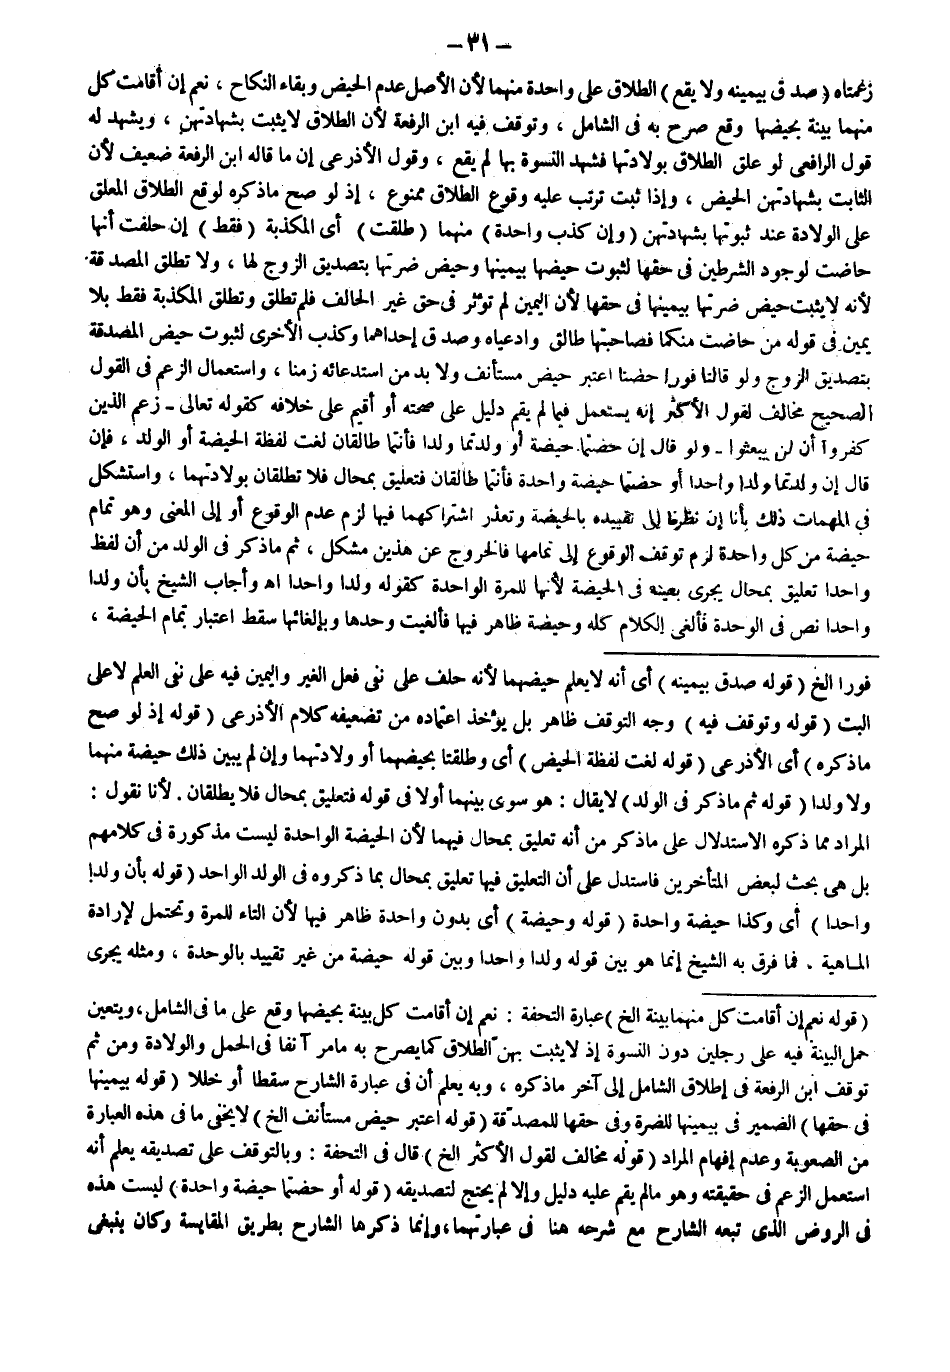 – ٣١ –
زعمتاه ( صدق بيمينه ولا يقع ) الطلاق على واحدة منهما لأن الأصل عدم الحيض وبقاء النكاح ، نعم إن أقامت كل
منهما بينة بحيضها وقع صرح به فى الشامل ، وتوقف فيه ابن الرفعة لأن الطلاق لايثبت بشهادتهن ، ويشهد له
قول الرافعى لو علق الطلاق بولادتها فشهد النسوة بها لم يقع ، وقول الأذرعى إن ما قاله ابن الرفعة ضعيف لأن
الثابت بشهادتهن الحيض ، وإذا ثبت ترتب عليه وقوع الطلاق ممنوع ، إذ لو صح ماذكره لوقع الطلاق المعلق
على الولادة عند ثبوتها بشهادتهن ( وإن كذب واحدة ) منهما ( طلقت ) أى المكذبة ( فقط ) إن حلفت أنها
حاضت لوجود الشرطين فى حقها لثبوت حيضها بيمينها وحيض ضرتها بتصديق الزوج لها ، ولا تطلق المصدقة
لأنه لايثبت حيض ضرتها بيمينها فى حقها لأن اليمين لم تؤثر فى حق غير الحالف فلم تطلق وتطلق المكذبة فقط بلا
يمين فى قوله من حاضت منكما فصاحبتها طالق وادعياه وصدق إحداهما وكذب الأخرى لثبوت حيض المصدقة
بتصديق الزوج ولو قالتا فورا حضنا اعتبر حيض مستأنف ولا بد من استدعائه زمنا ، واستعمال الزعم فى القول
الصحيح مخالف لقول الأكثر إنه يستعمل فيما لم يقم دليل على صحته أو أقيم على خلافه كقوله تعالى – زعم الذين
كفروا أن لن يبعثوا – ولو قال إن حضتما حيضة أو ولدتما ولدا فأنتما طالقان لغت لفظة الحيضة أو الولد ، فإن
قال إن ولدتما ولدا واحدا أو حضتما حيضة واحدة فأنتما طالقان فتعليق بمحال فلا تطلقان بولادتهما ، واستشكل
فى المهمات ذلك بأنا إن نظرنا إلى تقييده بالحيضة وتعذر اشتراكهما فيها لزم عدم الوقوع أو إلى المعنى وهو تمام
حيضة من كل واحدة لزم توقف الوقوع إلى تمامها فالخروج عن هذين مشكل ، ثم ماذكر فى الولد من أن لفظ
واحدا تعليق بمحال يجرى بعينه فى الحيضة لأنها للمرة الواحدة كقوله ولدا واحدا اه وأجاب الشيخ بأن ولدا
واحدا نص فى الوحدة فألغى الكلام كله وحيضة ظاهر فيها فألغيت وحدها وبإلغائها سقط اعتبار تمام الحيضة ،
فورا الخ ( قوله صدق بيمينه ) أى أنه لايعلم حيضهما لأنه حلف على نفى فعل الغير واليمين فيه على نفى العلم لاعلى
البت ( قوله وتوقف فيه ) وجه التوقف ظاهر بل يؤخذ اعتماده من تضعيفه كلام الأذرعى ( قوله إذ لو صح
ماذكره ) أى الأذرعى ( قوله لغت لفظة الحيض ) أى وطلقتا بحيضهما أو ولادتهما وإن لم يبين ذلك حيضة منهما
ولا ولدا ( قوله ثم ماذكر فى الولد ) لايقال : هو سوى بينهما أولا فى قوله فتعليق بمحال فلا يطلقان . لأنا نقول :
المراد مما ذكره الاستدلال على ماذكر من أنه تعليق بمحال فيهما لأن الحيضة الواحدة ليست مذكورة فى كلامهم
بل هى بحث لبعض المتأخرين فاستدل على أن التعليق فيها تعليق بمحال بما ذكروه فى الولد الواحد ( قوله بأن ولدا
واحدا ) أى وكذا حيضة واحدة ( قوله وحيضة ) أى بدون واحدة ظاهر فيها لأن التاء للمرة وتحتمل لإرادة
الماهية . فما فرق به الشيخ إنما هو بين قوله ولدا واحدا وبين قوله حيضة من غير تقييد بالوحدة ، ومثله يجرى
( قوله نعم إن أقامت كل منهما بينة الخ ) عبارة التحفة : نعم إن أقامت كل بينة بحيضها وقع على ما فى الشامل ، ويتعين
حمل البينة فيه على رجلين دون النسوة إذ لايثبت بهن الطلاق كما يصرح به مامر آنفا فى الحمل والولادة ومن ثم
توقف ابن الرفعة فى إطلاق الشامل إلى آخر ماذكره ، وبه يعلم أن فى عبارة الشارح سقطا أو خللا ( قوله بيمينها
فى حقها ) الضمير فى بيمينها للضرة وفى حقها للمصدقة ( قوله اعتبر حيض مستأنف الخ ) لايخفى ما فى هذه العبارة
من الصعوبة وعدم إفهام المراد ( قوله مخالف لقول الأكثر الخ ) قال فى التحفة : وبالتوقف على تصديقه يعلم أنه
استعمل الزعم فى حقيقته وهو مالم يقم عليه دليل وإلا لم يحتج لتصديقه ( قوله أو حضتما حيضة واحدة ) ليست هذه
فى الروض الذى تبعه الشارح مع شرحه هنا فى عبارتهما ، وإنما ذكرها الشارح بطريق المقايسة وكان ينبغى